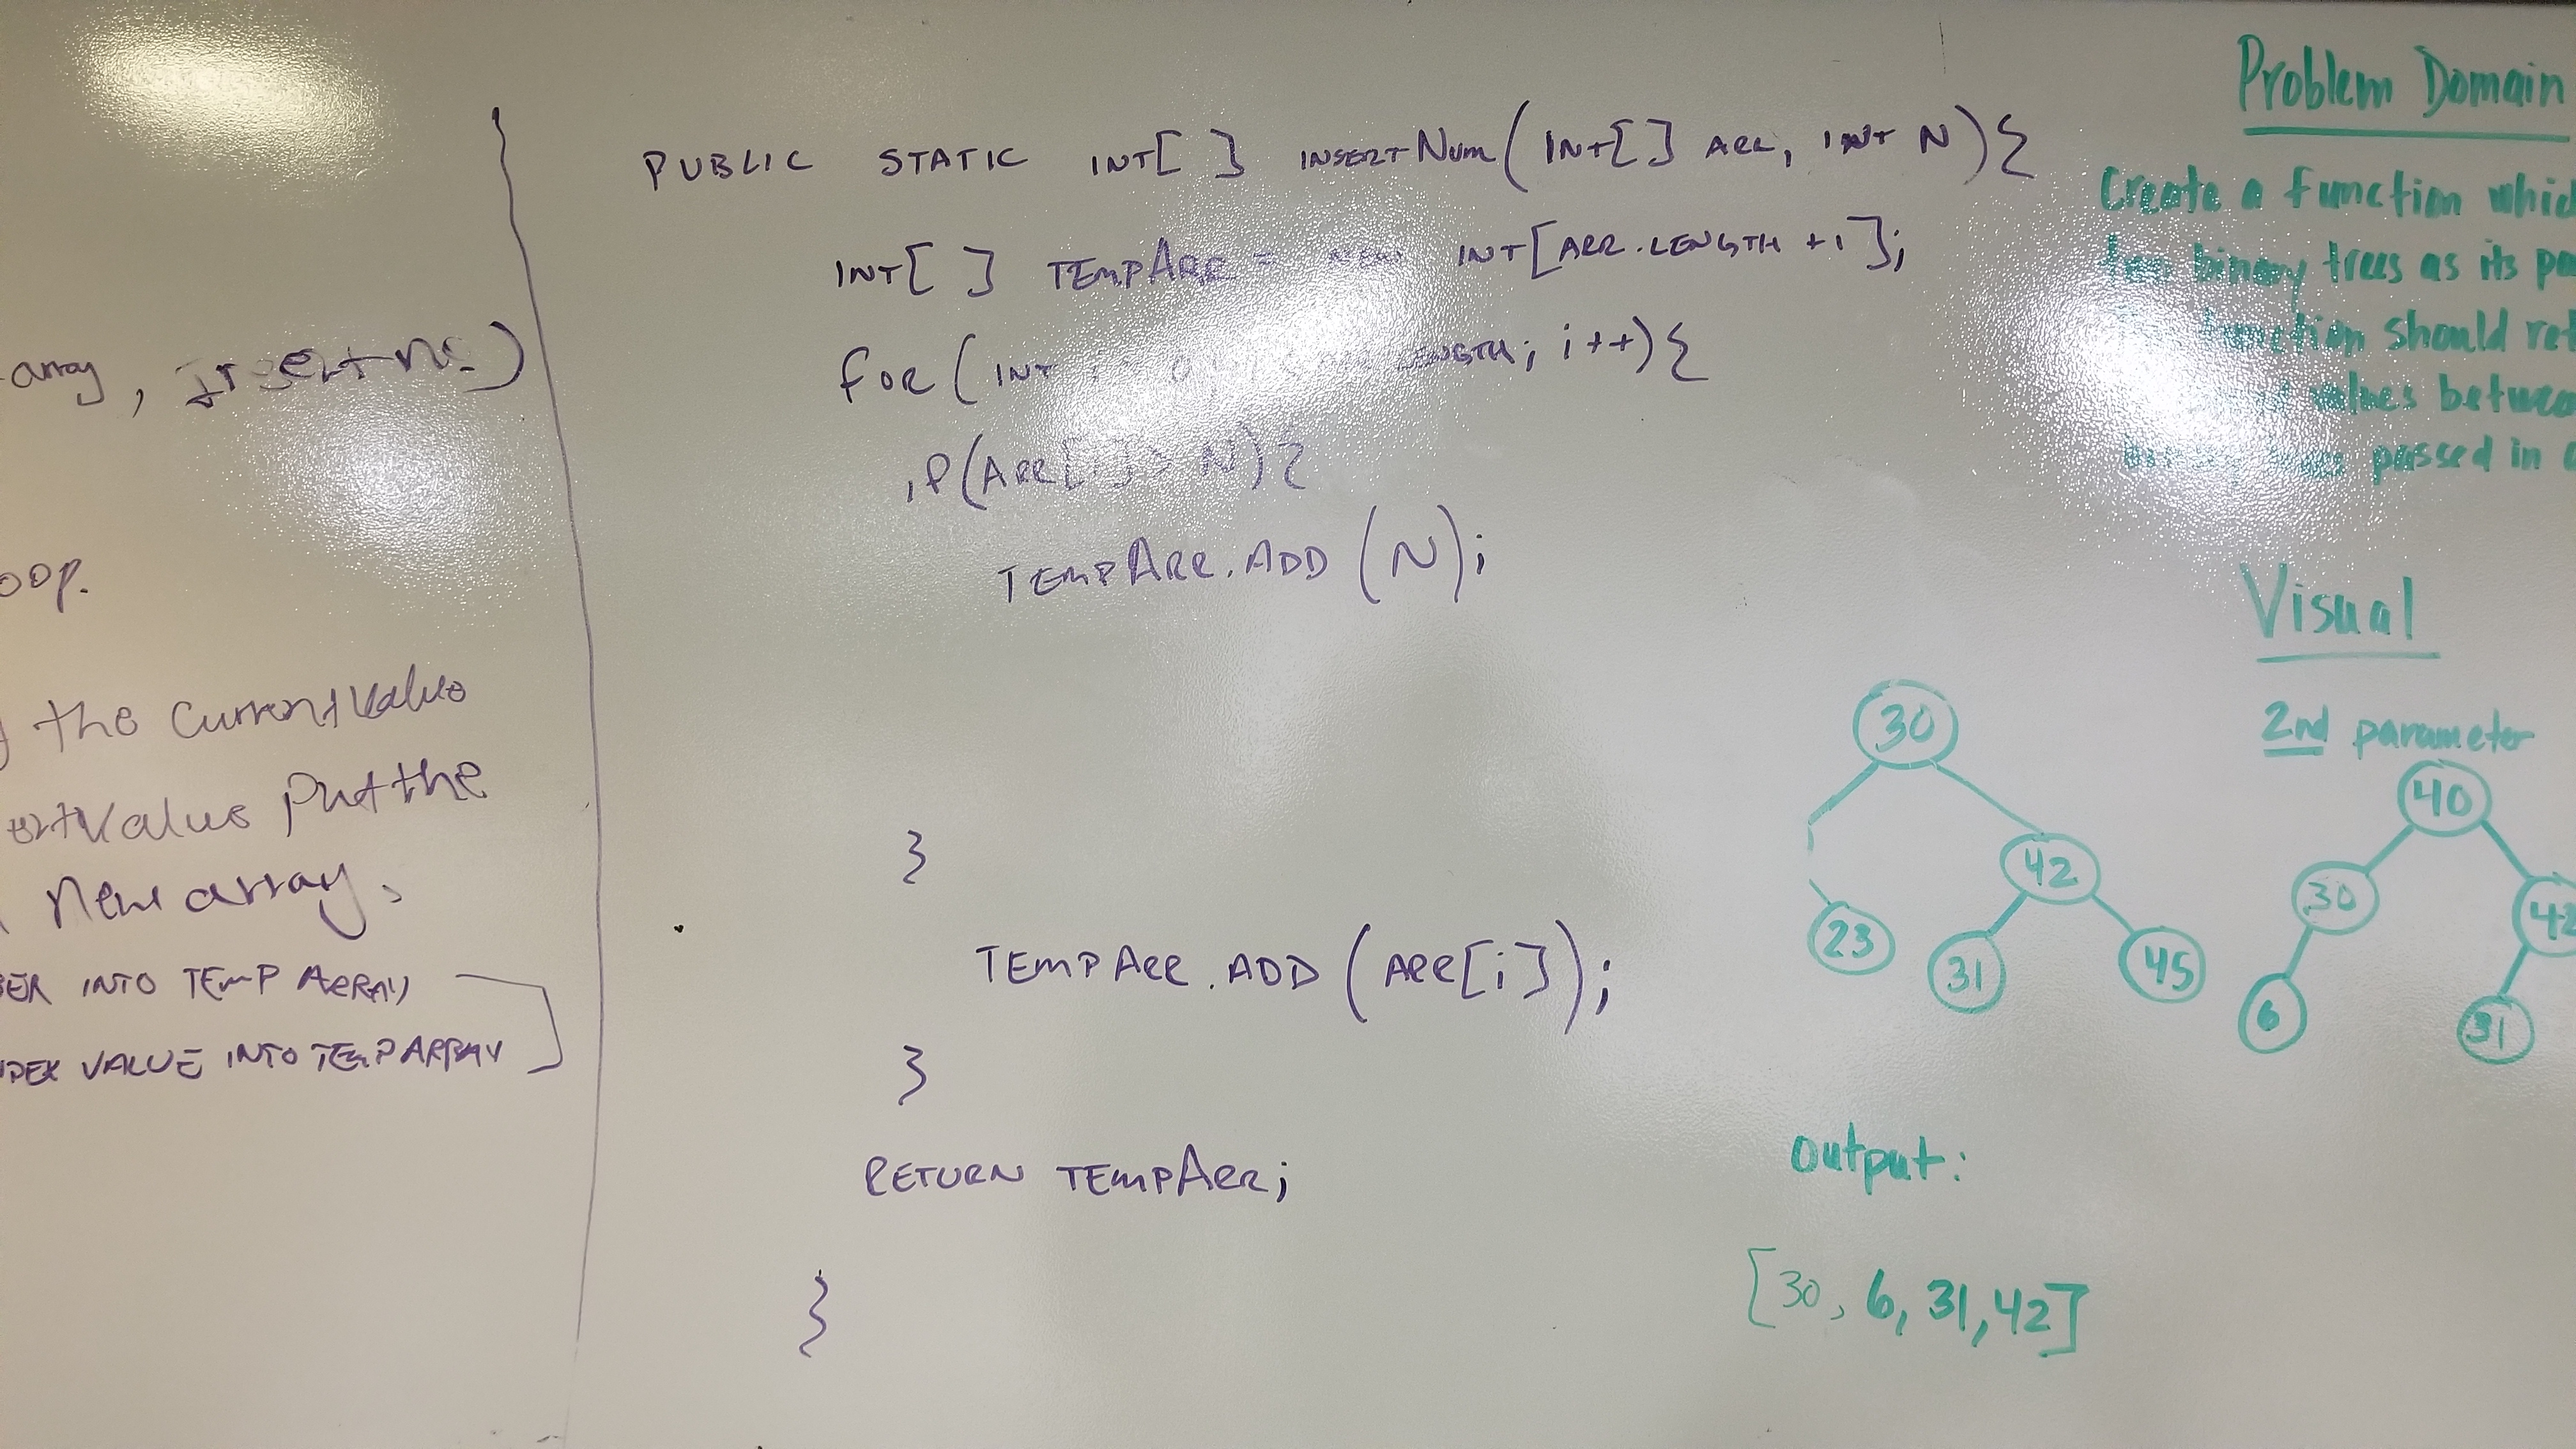 array,
oop.
the currentValue
ertValue put the
new array.
BER INTO TEMP ARRAY
NDEX VALUE INTO TEMPARRAY
PUBLIC STATIC INT[ ] INSERTNUM(INT[] ARR, INT N){
INT[ ] TEMPARR = NEW INT[ARR.LENGTH +1];
FOR (INT LENGTH; i++){
if(ARR[i] > N){
TEMPARR.ADD (N);
}
TEMPARR.ADD (ARR[i]);
}
RETURN TEMPARR;
}
Problem Domain
Create a function whic
two binary trees as its pa
function should ret
values between
passed in
Visual
2nd parameter
30
42
23
31
45
40
30
42
6
31
output:
[30, 6, 31, 42]